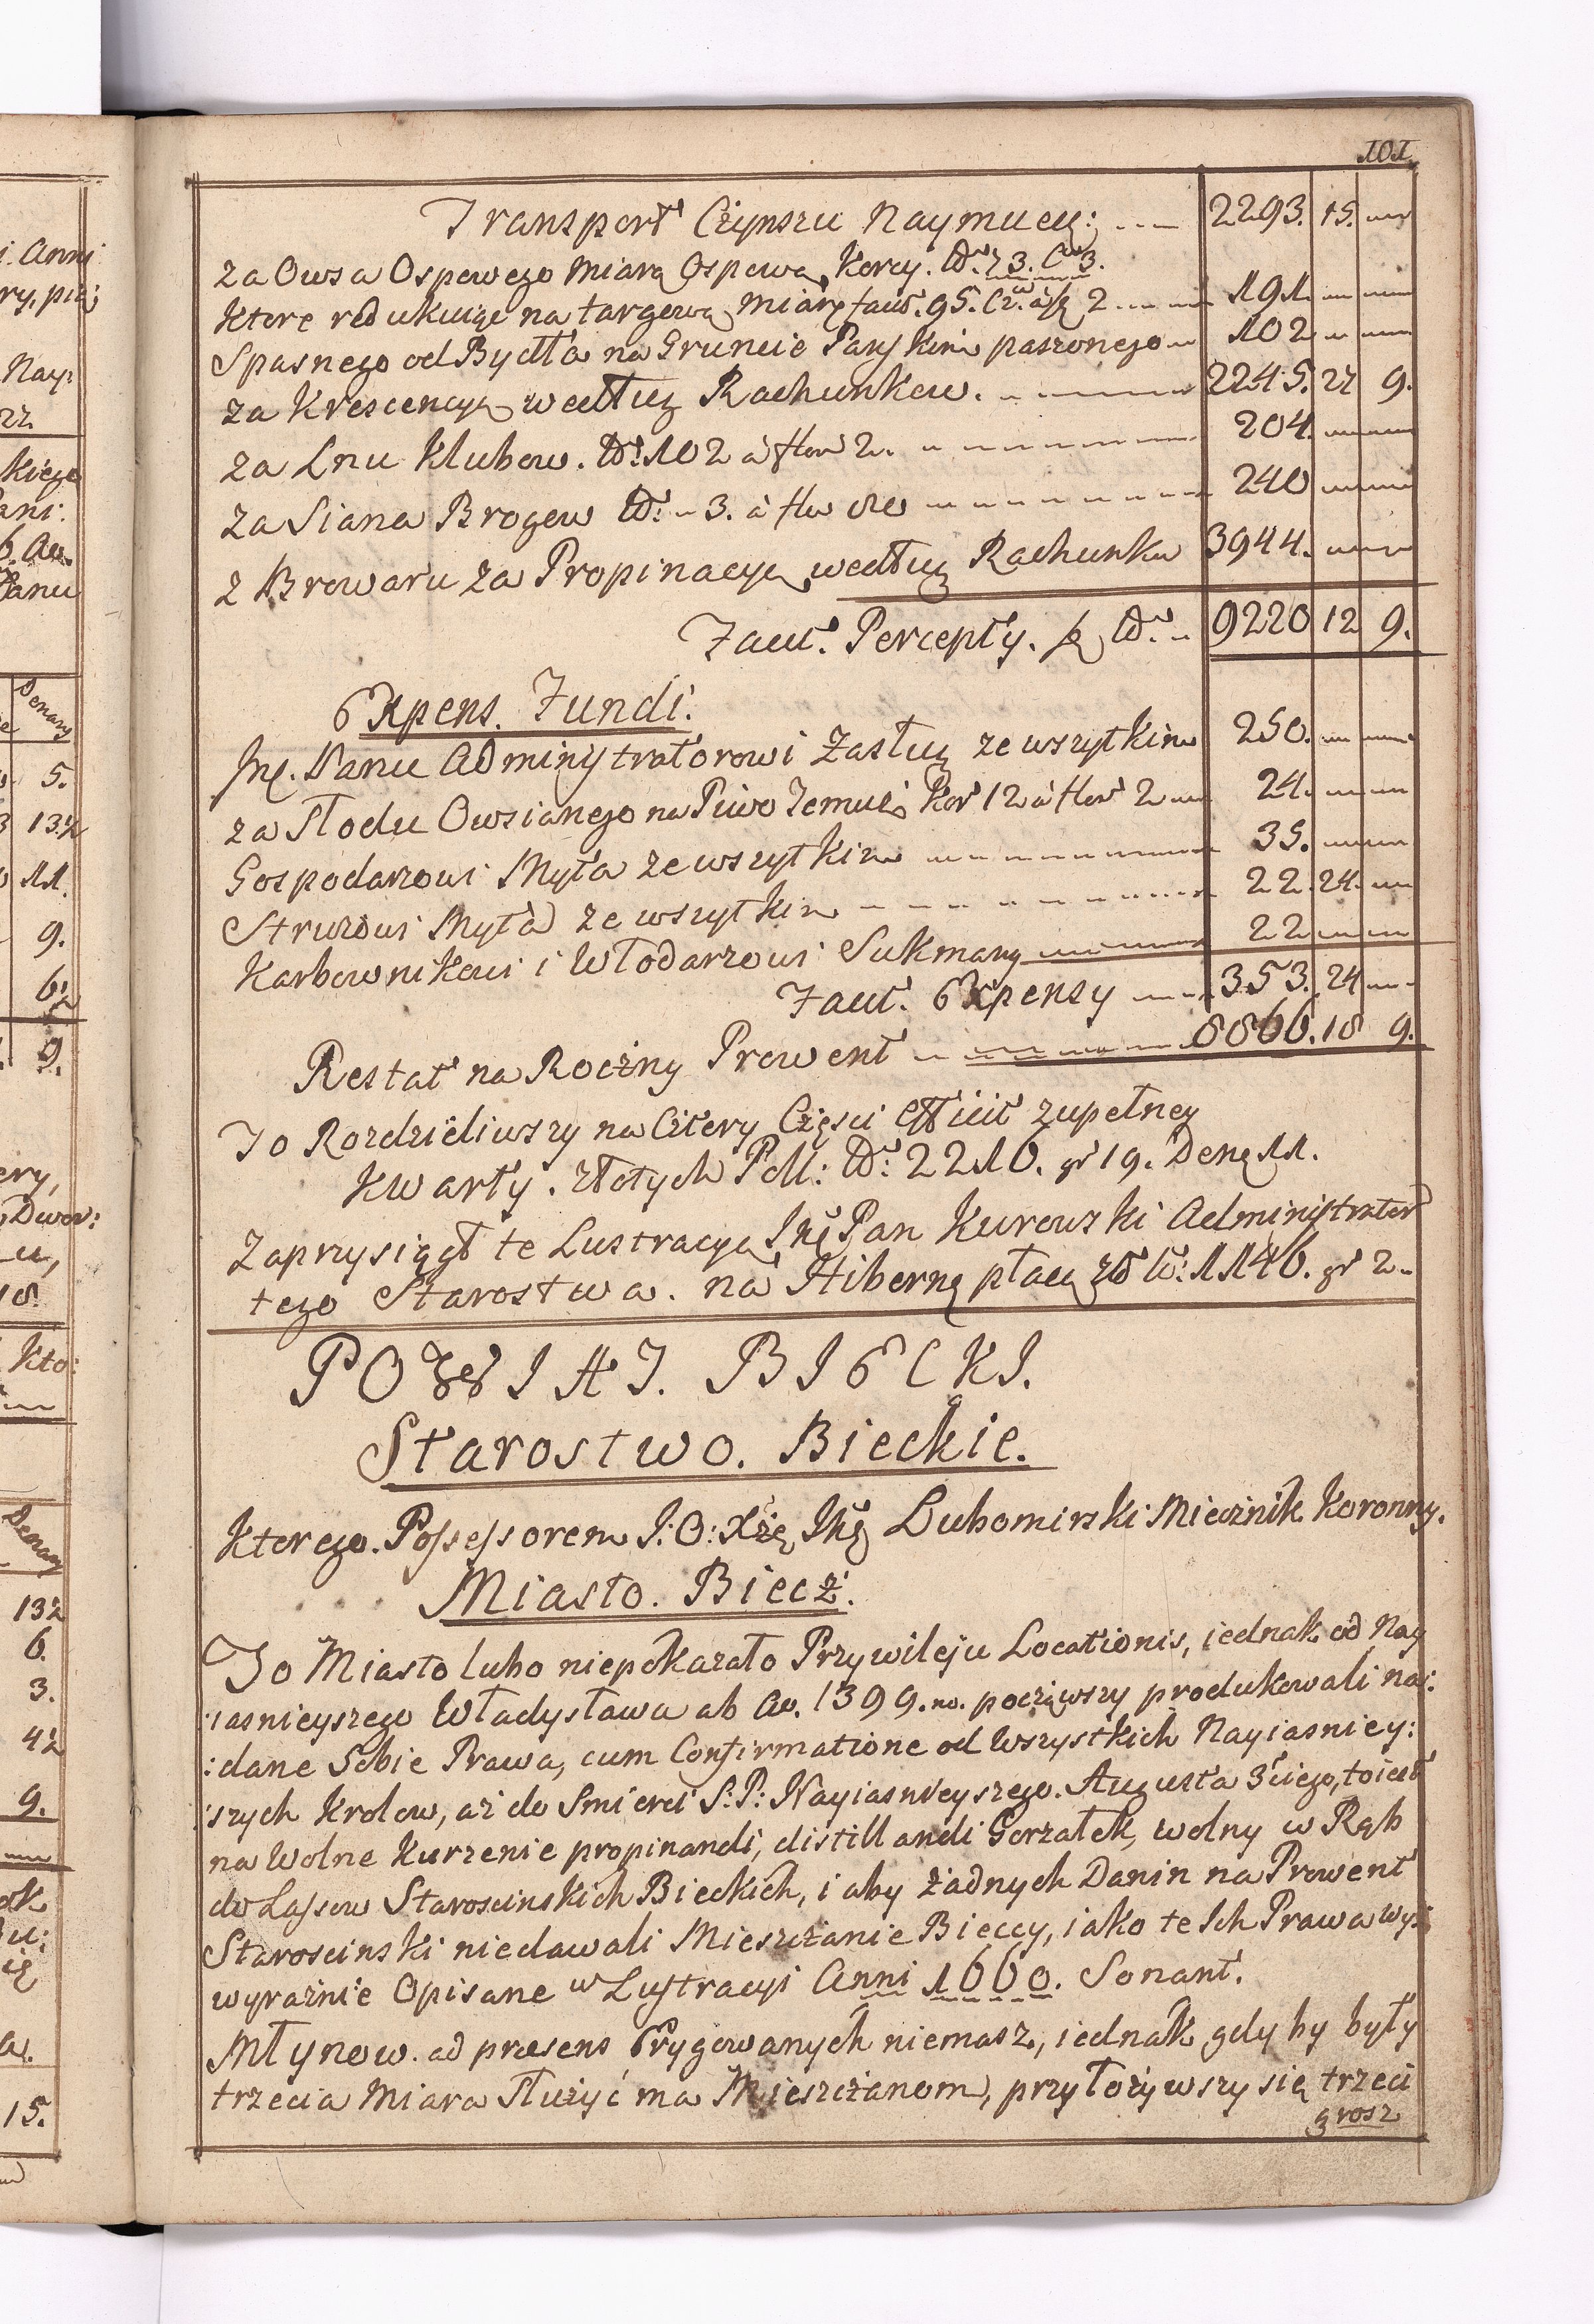 101
Transport Czynszu Naymuey: 2293. 15.
za Owsa Ospowego miarą Ospową Korcy. Nro 73.
ktore redukuiąc na targową miarę facit. 95. 2 191
Spasnego od Bydła na Gruncie Pańskim paszonego 102
za Krescencyą według Rachunkow. 2245. 27 9.
za Lnu Klubow. Nro 102 à flor 2. 204.
za Siana Brogow Nro 3. à flor 80 240
z Browaru za Propinacyą według Rachunku 3944.
Facit. Percepty. Nro 9220 12 9.
Expens. Fundi.
Jmć. Panu Administratorowi Zasług ze wszytkim 250.
za Słodu Owsianego na Piwo Temuż Kor 12 à flor 2 24.
Gospodarzowi Myta ze wszytkim 35.
Strużowi Myta ze wszytkim 22. 24.
Karbownikowi i Włodarzowi Sukmany 22
Facit. Expensy 353. 24
Restat na Roczny Prowent 8866. 18 9.
To Rozdzieliwszy na Cztery Części Efficit zupełney
Kwarty. złotych Poll: Nro: 2216. gr 19. Deng 11.
Zaprzysiągł te Lustracyą Jmć Pan Kurowski Administrator
tego Starostwa. na Hibernę płacą zł Nro: 1146. gr 2.
POWIAT. BIECKI.
Starostwo. Bieckie.
Ktorego. Possessorem J: O: Xżę Jmć Lubomirski Miecznik Koronny.
Miasto. Biecz.
To Miasto lubo niepokazało Przywileju Locationis, iednak od Nay
:iasnieyszego Władysława ab Ao. 1399.no. począwszy produkowali na:
:dane Sobie Prawa, cum Confirmatione od Wszystkich Nayiasniey:
:szych Krolow, aż do Smierci S: P: Nayiasnieyszego. Augusta 3ciego, to iest
na Wolne Kurzenie propinandi, distillandi Gorzałek, wolny w Rąb
do Lassow Staroscinskich Bieckich, i aby żadnych Danin na Prowent
Staroscinski niedawali Mieszczanie Bieccy, iako te Ich Prawa wyż
wyraźnie Opisane w Lustracyi Anni 1660. Sonant.
Młynow. ad præsens Erygowanych niemasz, iednak gdy by były
trzecia Miara Służyć ma Mieszczanom, przyłożywszy się trzeci
grosz